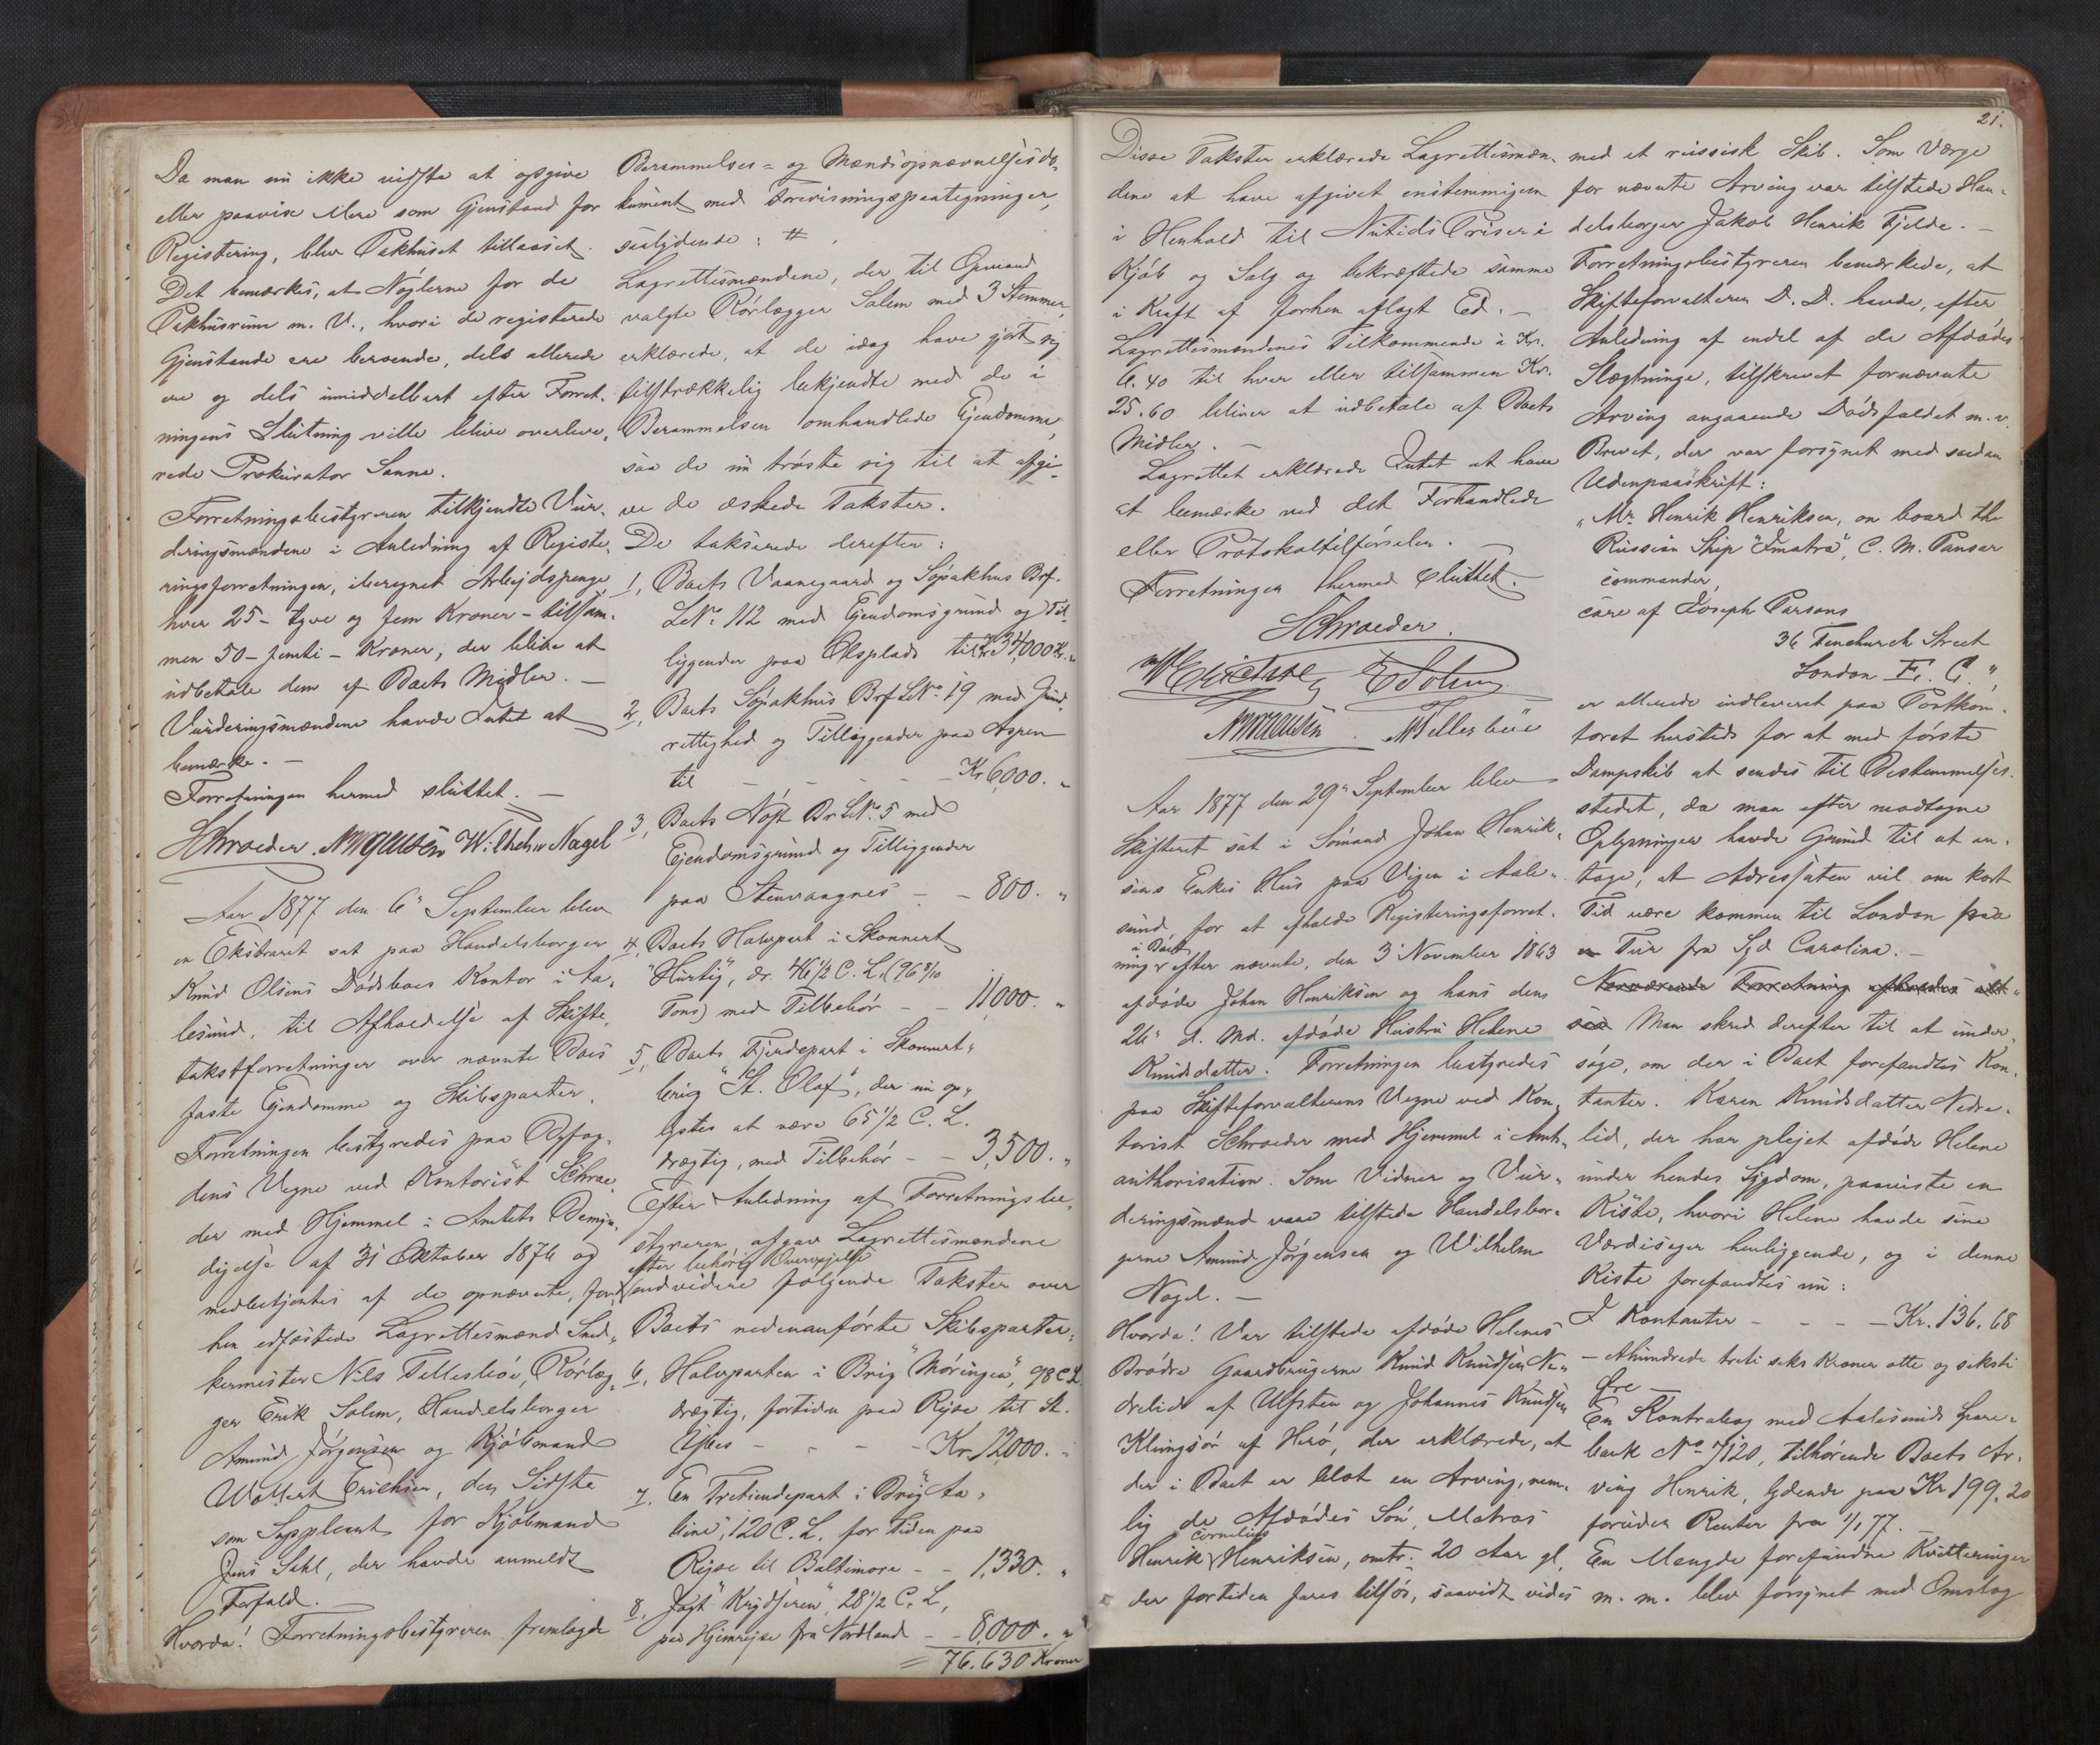 Da man nu ikke vidste at opgive
eller paavise Mere som Gjenstand for
Registering, blev Pakhuset tillaaset.
Det bemærkes, at Nøglerne for de
Pakhusrum m. V., hvori de registerede
Gjenstande ere beroende, dels allerede
ere og dels umiddelbart efter Forret-
ningens Slutning ville blive overleve-
rede Prokurator Sanne.
Forretningsbestyreren tilkjendte Vur-
deringsmændene i Anledning af Registe-
ringsforretningen, iberegnet Arbejdspenge
hver 25 - tyve og fem Kroner - tilsam-
men 50 - femti - Kroner, der blive at
udbetale dem af Boets Midler. -
Vurderingsmændene havde Intet at
bemærke. -
Forretningen hermed sluttet. -
Schroeder. Wilhelm Nagel
Aar 1877 den 6" September blev
en Ekstraret sat paa Handelsborger
Knud Olsens Dødsboes Kontor i Aa-
lesund, til Afholdelse af Skifte-
takstforretninger over nævnte Boes
faste Ejendomme og Skibsparter.
Forretningen bestyredes paa Byfog-
dens Vegne ved Kontorist Schroe-
der med Hjemmel i Amtets Bemyn-
digelse af 31 Oktober 1876 og
medbetjentes af de opnævnte, for-
hen edfæstede Lagrettesmænd Sned-
kermester Nils Tellesbøe, Rørlæg-
ger Erik Solem, Handelsborger
Amund Jørgensen og Kjøbmand
Wollert Erichsen, den Sidste
som Suppleant for Kjøbmand
Jens Dahl, der havde anmeldt
Forfald. -
Hvorda! Forretningsbestyreren fremlagde
Berammelses- og Mændsopnævnelsesdo-
kument med Forevisningspaategninger,
saalydende: #
Lagrettesmændene, der til Opmand
valgte Rørlægger Solem med 3 Stemmer,
erklærede, at de idag have gjort sig
tilstrækkelig bekjendte med de i
Berammelsen omhandlede Ejendomme,
saa de nu trøste sig til at afgi-
ve de æskede Takster.
De takserede derefter:
1, Boets Vaanegaard og Søpakhus Brf.
LNo 112 med Ejendomsgrund og Til-
liggender paa Oksplads til Kr 34,000 Kr. "
2, Boets Søpakhus Brf LNo 19 med Grund-
rettighed og Tilliggender paa Aspen
til - - - - Kr 6,000. "
3, Boets Nøst Br LNo 5 med
Ejendomsgrund og Tilliggender
paa Stenvaagnes - - 800. "
4, Boets Halvpart i Skonnert
"Hurtig", dr. 46 1/2 C. L. (96 8/10
Tons) med Tilbehør - - 11,000. "
5, Boets Fjerdepart i Skonnert-
brig "St. Olaf", der nu op-
lystes at være 65 1/2 C. L.
drægtig, med Tilbehør - - 3,500. "
Efter Anledning af Forretningsbe-
styreren afgav Lagrettesmændene
efter behørig Overvejelse
endvidere følgende Takster over
Boets nedenanførte Skibsparter:
6, Halvparten i Brig "Møringen", 98 C L.
drægtig, fortiden paa Rejse til St.
Ybes - - - - Kr. 12,000. "
7, En Trettiendepart i Brig "Aa-
line", 120 C. L. for Tiden paa
Rejse til Baltimore - - 1,330. "
8, Jagt "Krydseren", 28 1/2 C. L,
paa Hjemrejse fra Nordland - - 8,000. "
= 76.630 Kroner
21.
Disse Takster erklærede Lagrettesmæn-
dene at have afgivet enstemmigen
i Henhold til Nutids Priser i
Kjøb og Salg og bekræftede samme
i Kraft af forhen aflagt Ed. -
Lagrettesmændenes Tilkommende à Kr.
6.40 til hver eller tilsammen Kr.
25.60 bliver at udbetale af Boets
Midler. -
Lagrettet erklærede Intet at have
at bemærke ved det Forhandlede
eller Protokoltilførselen. -
Forretningen hermed sluttet. -
Schroeder.
W Erichsen E Solem
N Tellesbøe
Aar 1877 den 29" September blev
Skifteret sat i Sømand Johan Henrik-
sens Enkes Hus paa Vigen i Aale-
sund for at afholde Registeringsforret-
i Boet
ning efter nævnte, den 3' November 1863
afdøde Johan Henriksen og hans den
26" d. Md. afdøde Hustru Helene
Knudsdatter. Forretningen bestyredes
paa Skifteforvalterens Vegne ved Kon-
torist Schroeder med Hjemmel i Amts-
authorisation. Som Vidner og Vur-
deringsmænd vare tilstede Handelsbor-
gerne Amund Jørgensen og Wilhelm
Nagel. -
Hvorda! Var tilstede afdøde Helenes
Brødre Gaardbrugerne Knud Knudsen Ne-
drelid af Ulfsten og Johannes Knudsen
Klungsør af Herø, der erklærede, at
der i Boet er blot en Arving, nem-
lig de Afdødes Søn, Matros
Cornelius
Henrik Henriksen, omtr. 20 Aar gl,
der fortiden fares tilsøs, saavidt vides
med et russisk Skib. Som Værge
for nævnte Arving var tilstede Han-
delsborger Jakob Henrik Fjelde. -
Forretningsbestyreren bemærkede, at
Skifteforvalteren D. D. havde, efter
Anledning af endel af de Afdødes
Slægtninge, tilskrevet fornævnte
Arving angaaende Dødsfaldet m. v.
Brevet, der var forsynet med saadan
Udenpaaskrift:
"Mr. Henrik Henriksen, on board the
Russian Ship "Imatra", C. M. Pansar
commander,
care af Joseph Parsons
36 Fenchurch Street
London E. C.",
er allerede indleveret paa Postkon-
toret hersteds for at med første
Dampskib at sendes til Bestemmelses-
stedet, da man efter modtagne
Oplysninger havde Grund til at an-
tage, at Adressaten vil om kort
Tid være kommen til London paa
en Tur fra Syd Carolina. -
Nærværende Forretning afholdes alt-
saa Man skred derefter til at under-
søge, om der i Boet forefandtes Kon-
tanter. Karen Knudsdatter Nedre-
lid, der har plejet afdøde Helene
under hendes Sygdom, paaviste en
Kiste, hvori Helene havde sine
Værdisager henliggende, og i denne
Kiste forefandtes nu:
I Kontanter - - - - Kr. 136.68
- Ethundrede treti seks Kroner otte og seksti
Øre -
En Kontrabog med Aalesunds Spare-
bank No 7120, tilhørende Boets Ar-
ving Henrik, lydende paa Kr 199.20
foruden Renter fra 1/1 77. -
En Mængde forefundne Kvitteringer
m. m. blev forsynet med Omslag